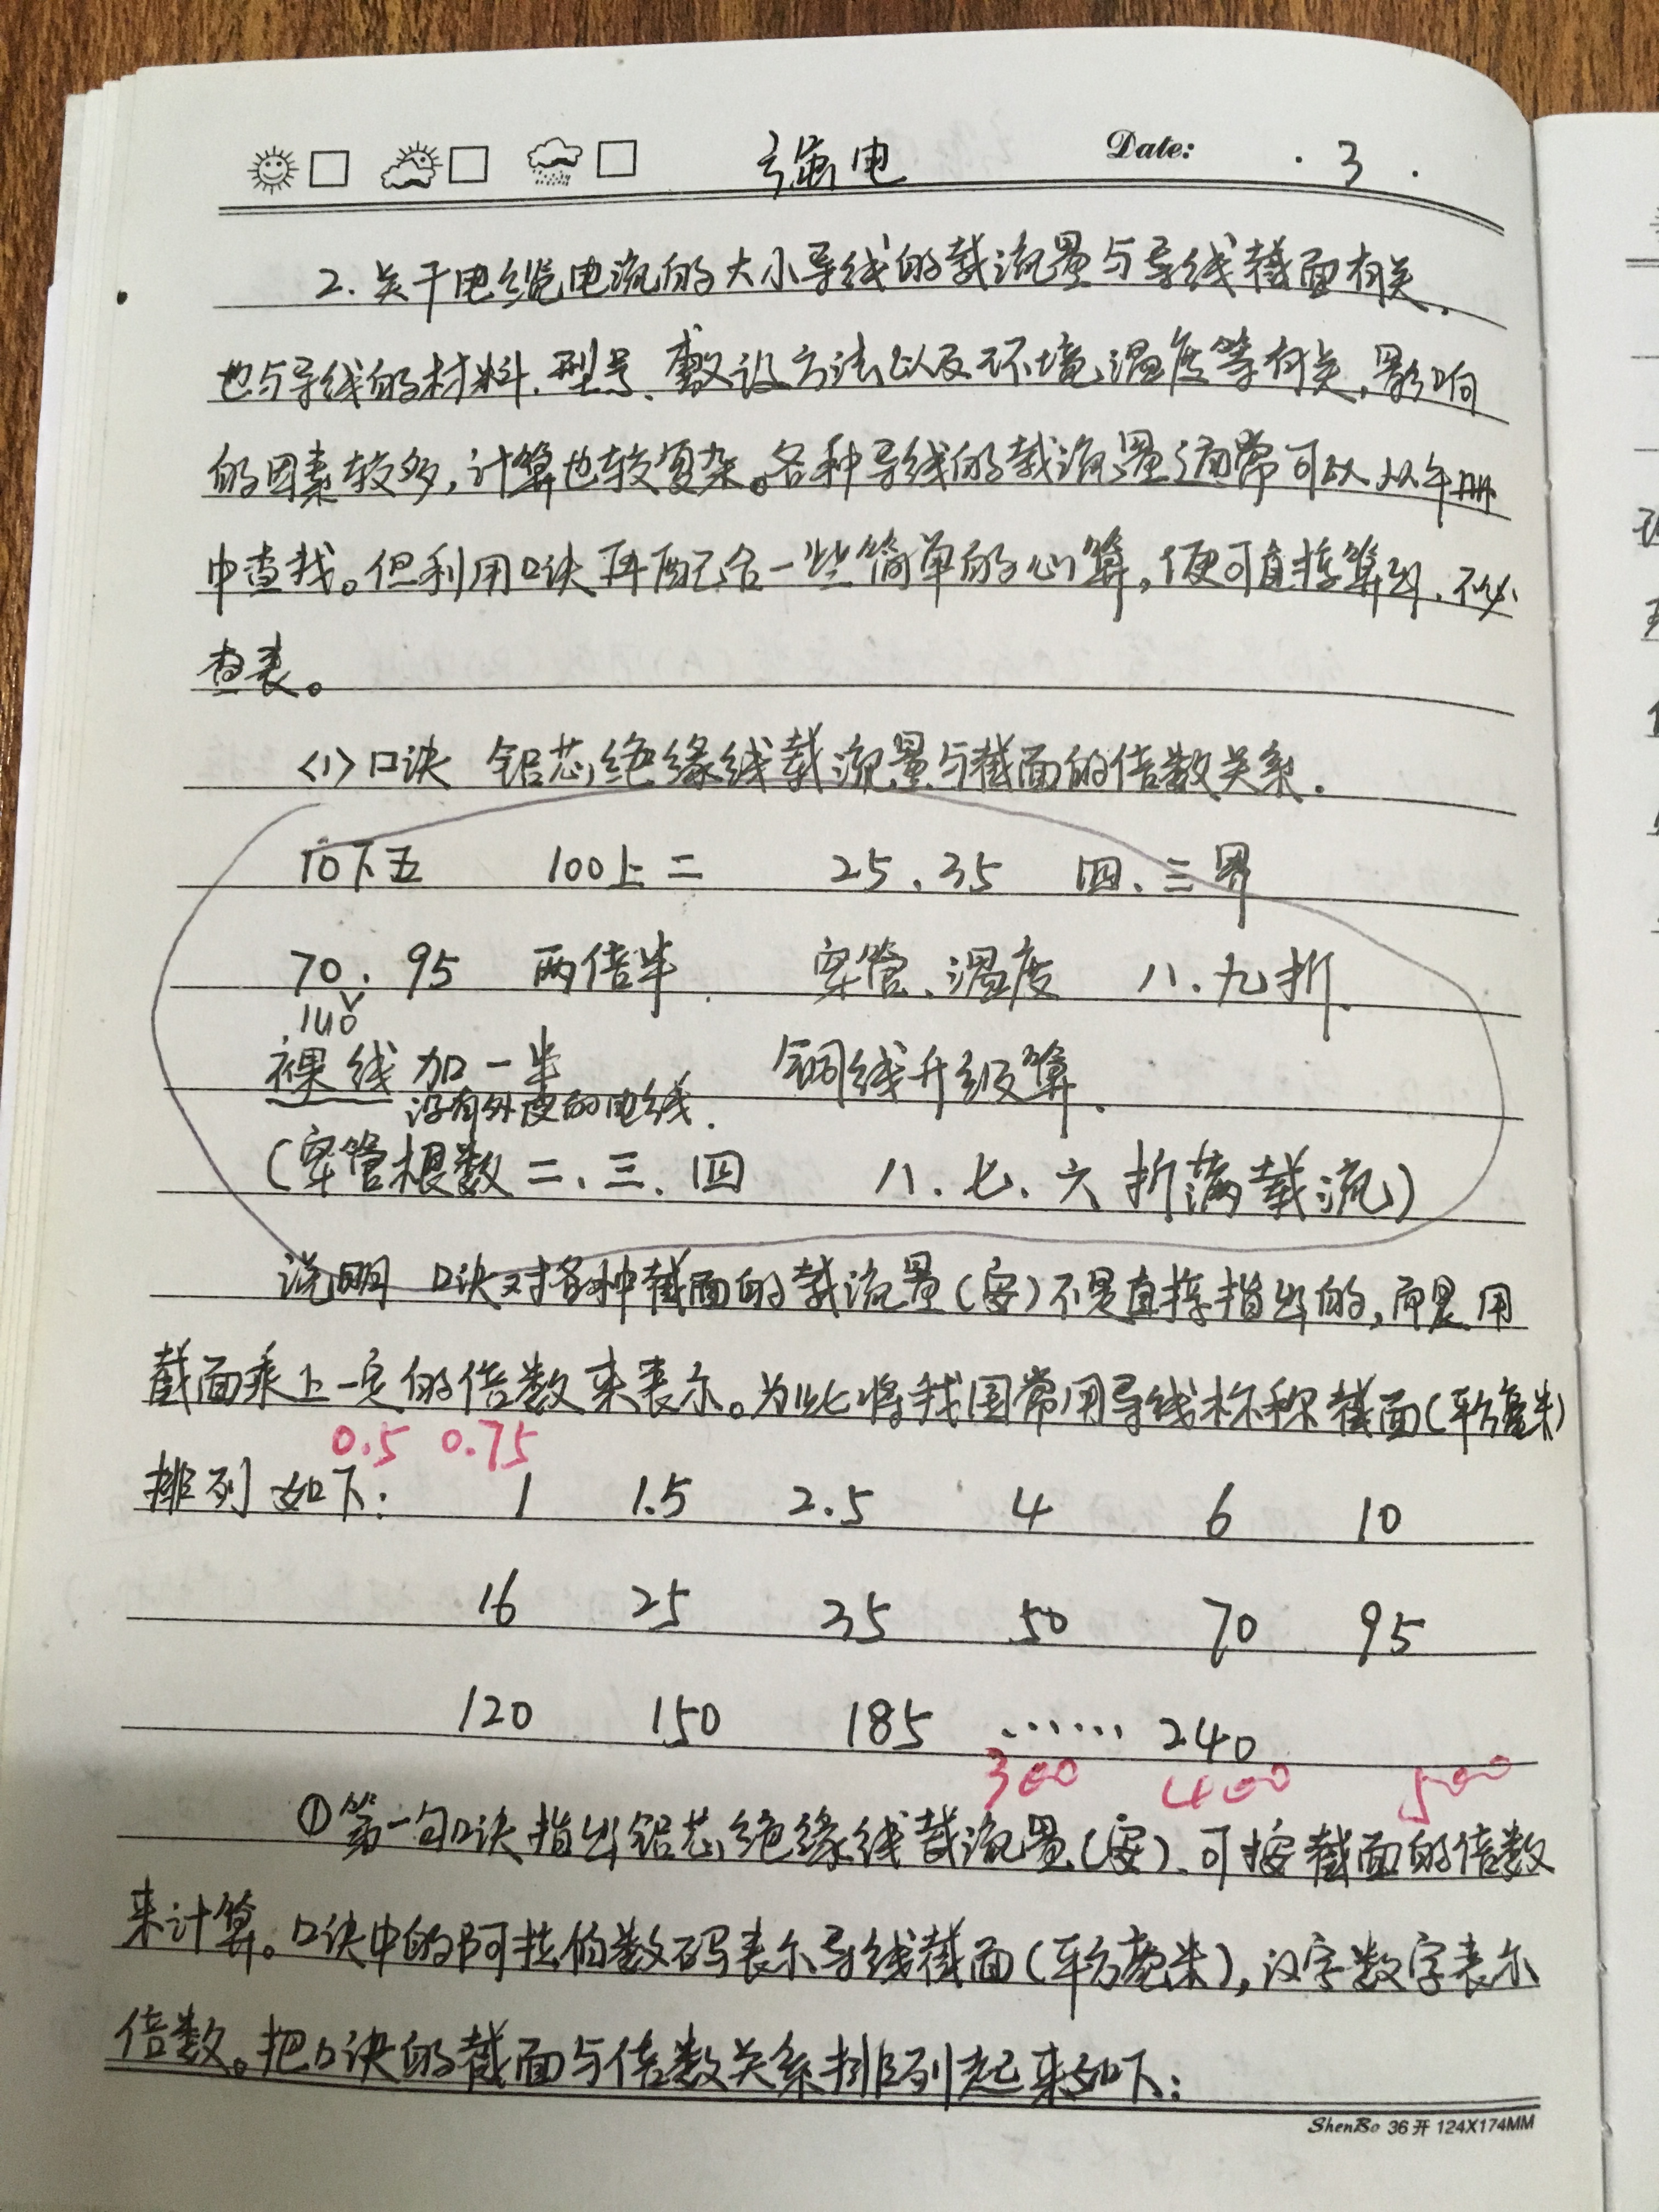 强电 Date: · 3 ·
2. 关于电缆电流的大小导线的载流量与导线截面有关.
也与导线的材料、型号、敷设方法以及环境温度等有关,影响
的因素较多,计算也较复杂。各种导线的载流量通常可以从手册
中查找。但利用口诀再配合一些简单的心算,便可直接算到,不必
查表。
<1>口诀 铝芯绝缘线载流量与截面的倍数关系.
10下五 100上二 25、35 四、三界
70、95 两倍半. 穿管、温度 八、九折.
裸线加一半 铜线升级算.
没有外皮的电线.
(穿管根数二、三、四 八、七、六折满载流)
说明 口诀对各种截面的载流量(安)不是直接指出的,而是用
截面乘上一定的倍数来表示。为此将我国常用导线标称截面(平方毫米)
0.5 0.75
排列如下: 1 1.5 2.5 4 6 10
16 25 35 50 70 95
120 150 185 ⋯⋯ 240
300 400 500
①第一句口诀指出铝芯绝缘线载流量(安)、可按截面的倍数
来计算。口诀中的阿拉伯数码表示导线截面(平方毫米),汉字数字表示
倍数。把口诀的截面与倍数关系排列起来如下:
ShenBo 36开 124X174MM